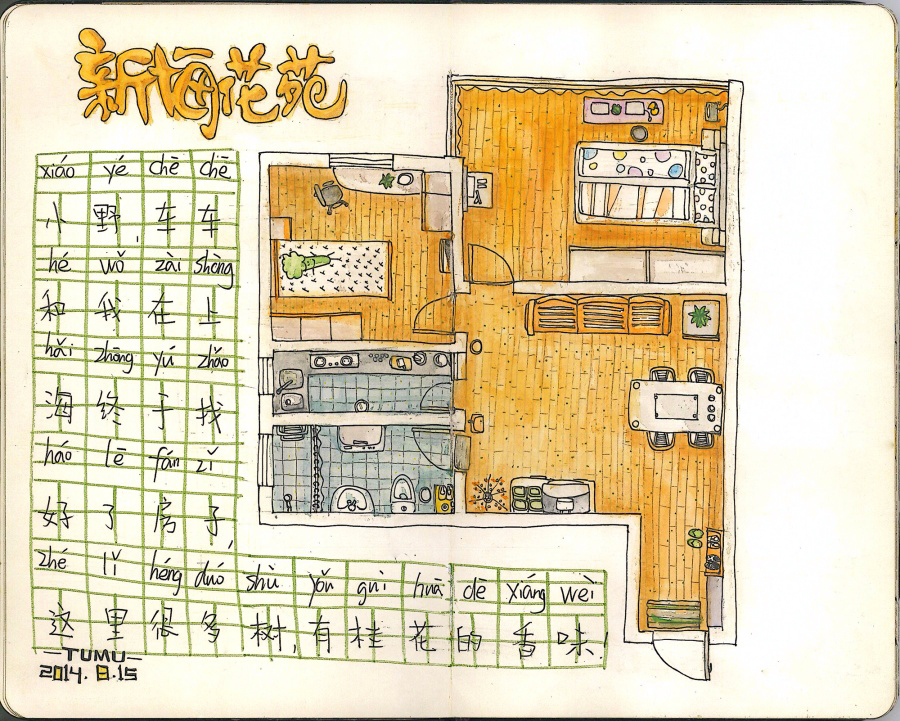 新梅花苑
xiáo yé chē chē
小野,车车
hé wǒ zài shàng
和我在上
hǎi zhōng yú zhǎo
海终于找
háo lē fán zǐ
好了房子,
zhé lǐ héng duó shù yǒu guì huā dē xiáng wèi
这里很多树,有桂花的香味!
—TUMU—
2014.8.15